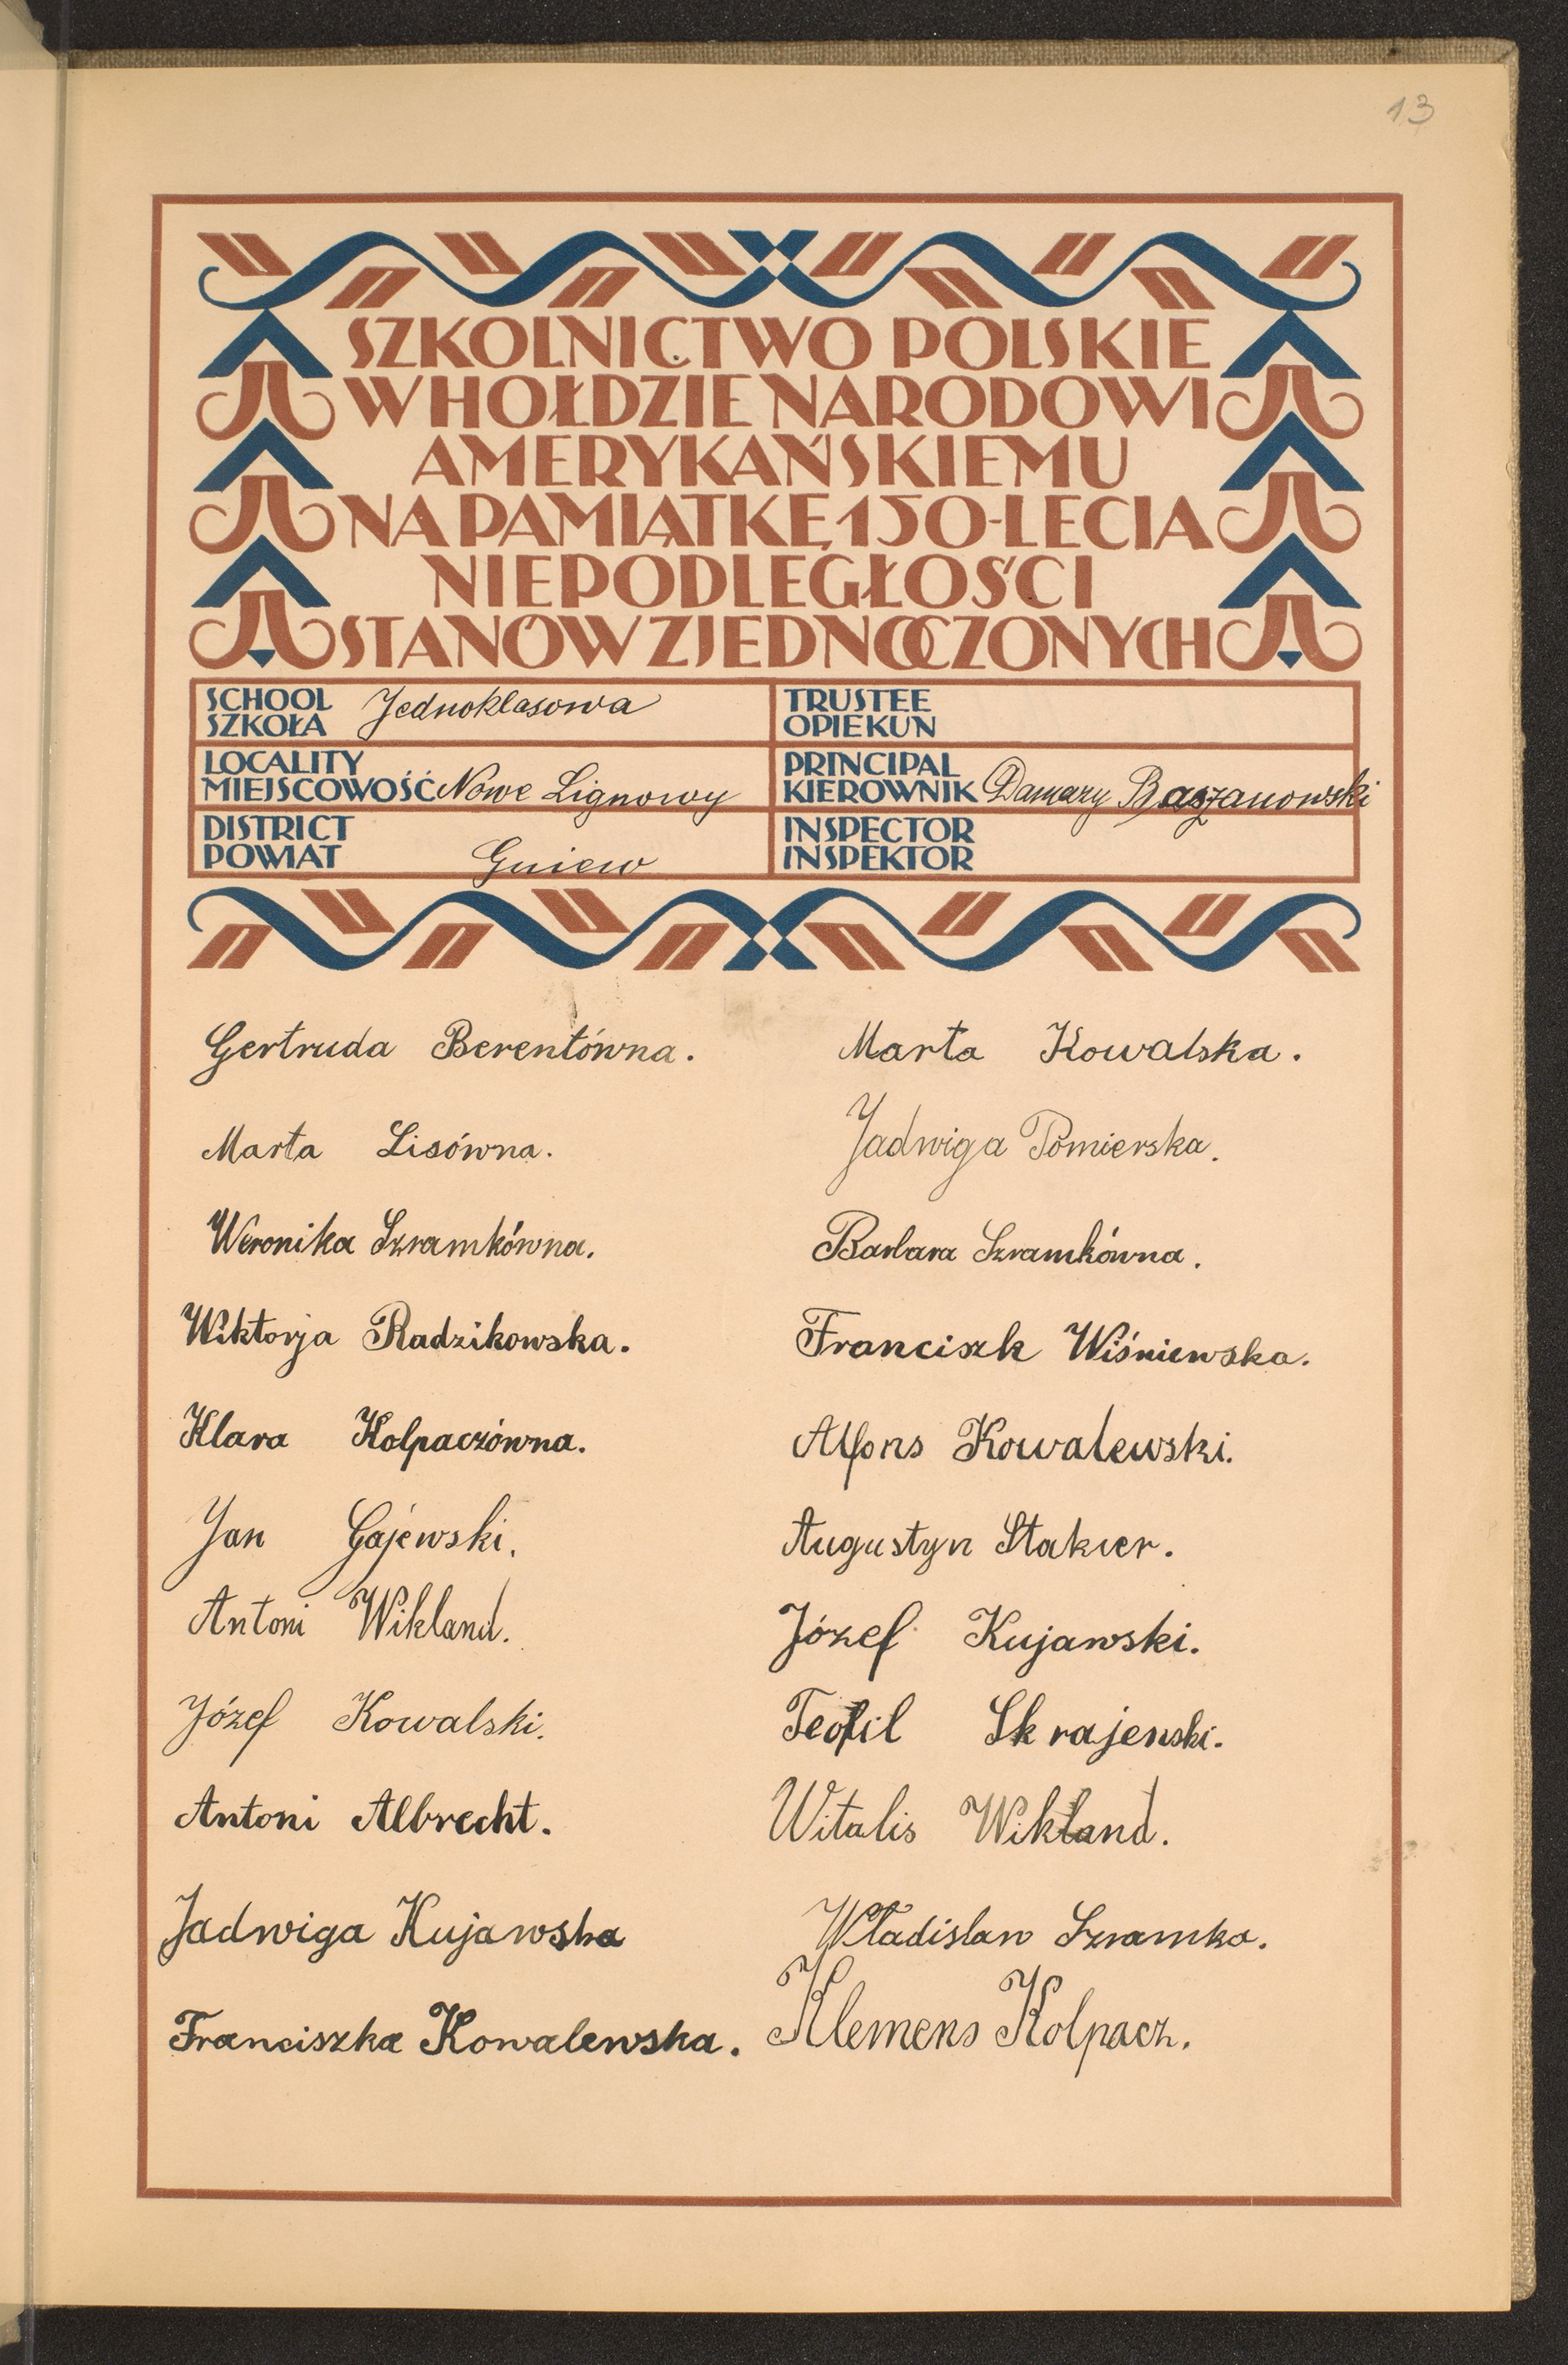 13
SZKOLNICTWO POLSKIE
W HOŁDZIE NARODOWI
AMERYKAŃSKIEMU
NA PAMIĄTKĘ 150-LECIA
NIEPODLEGŁOŚCI
STANÓW ZJEDNOCZONYCH
SCHOOL
SZKOŁA Jednoklasowa
TRUSTEE
OPIEKUN
LOCALITY
MIEJSCOWOŚĆ Nowe Lignowy
PRINCIPAL
KIEROWNIK Damazy Baszanowski
DISTRICT
POWIAT Gniew
INSPECTOR
INSPEKTOR
Gertruda Berentówna.
Marta Lisówna.
Weronika Szramkówna.
Wiktorja Radzikowska.
Klara Kolpaczówna.
Jan Gajewski.
Antoni Wikland.
Józef Kowalski.
Antoni Albrecht.
Jadwiga Kujawska
Franciszka Kowalewska.
Marta Kowalska.
Jadwiga Pomierska.
Barbara Szramkówna.
Franciszk Wiśniewska.
Alfons Kowalewski.
Augustyn Stakier.
Józef Kujawski.
Teofil Skrajewski.
Witalis Wikland.
Władislaw Szramka.
Klemens Kolpacz.